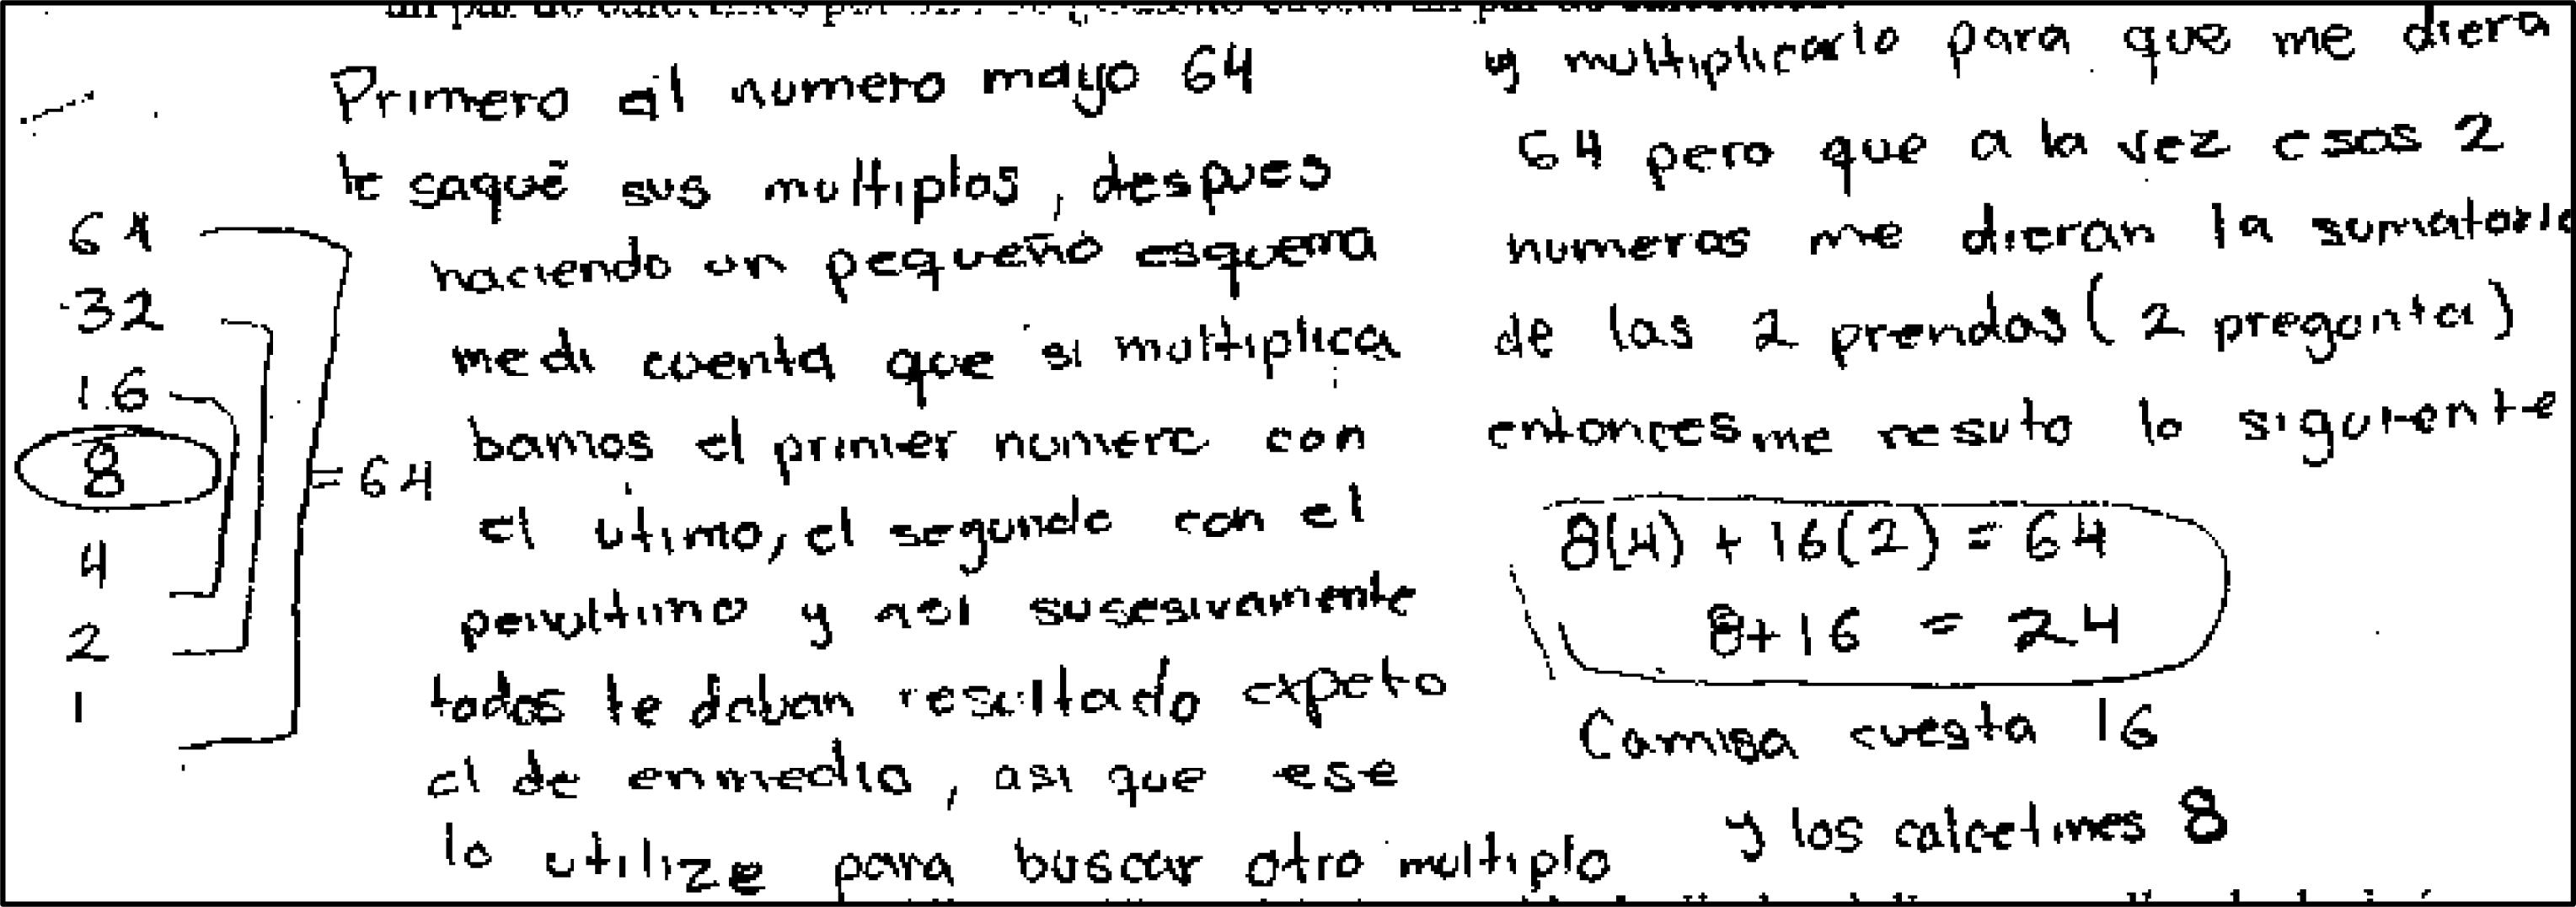 Primero al numero mayo 64
le saqué sus multiplos, despues
haciendo un pequeño esquema
me di cuenta que si multiplica
bamos el primer numero con
el utimo, el segundo con el
penultimo y asi susesivamente
todos te daban resultado expeto
el de enmedio, asi que ese
lo utilize para buscar otro multiplo
64
32
16
8
4
2
1
= 64
y multiplicarlo para que me diera
64 pero que a la vez esos 2
numeros me dieran la sumatoria
de las 2 prendas (2 pregunta)
entonces me resuto lo siguiente
8(4) + 16(2) = 64
8+16 = 24
Camisa cuesta 16
y los calcetines 8